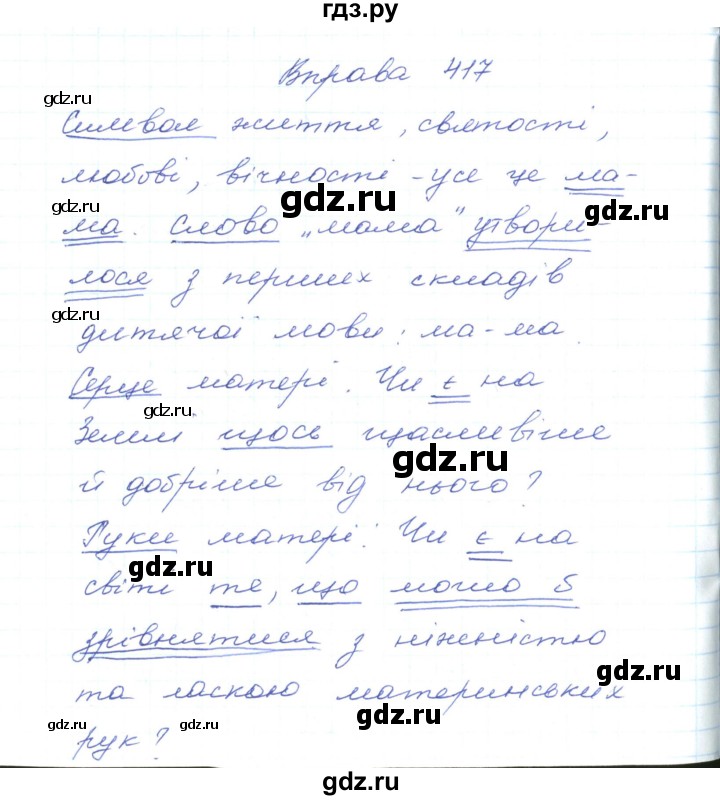 гдз.ру
Вправа 417
gdz.ru
Символ життя, святості,
любові, вічності - усе це ма-
gdz.ru
gdz.ru
ма. Слово „мама" утвори-
лося з перших складів
gdz.ru
дитячої мови: ма-ма.
Серце матері. Чи є на
gdz.ru
Землі щось щасливіше
gdz.ru
й добріше від нього?
Руки матері. Чи є на
gdz.ru
світі те, що могло б
зрівнятися з ніжністю
gdz.ru
та ласкою материнських
gdz.ru
gdz.ru
gdz.ru
рук?
gdz.ru